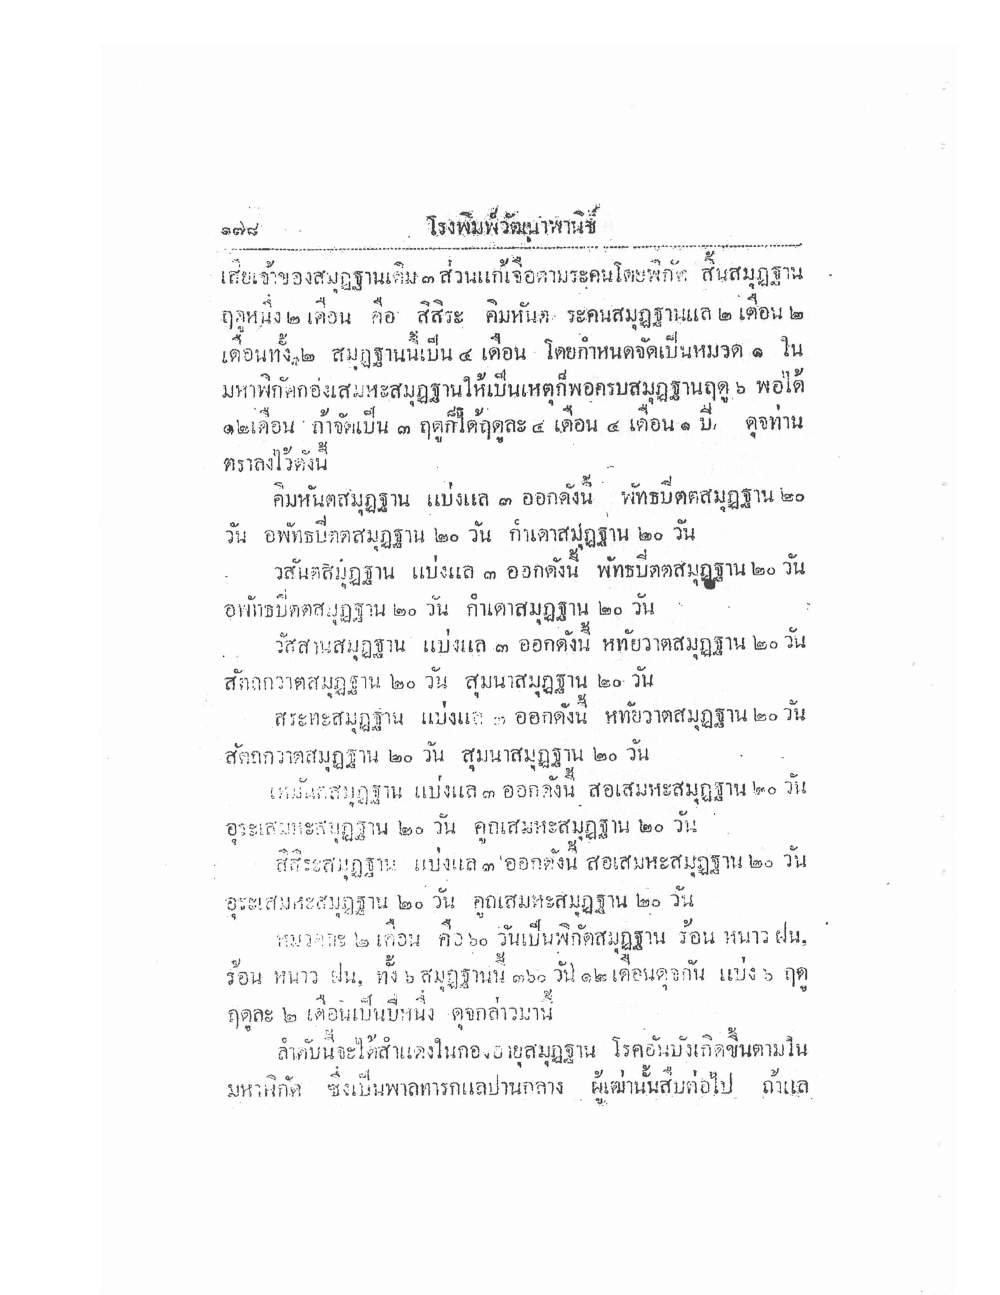 ๑๗๘ โรงพิมพ์วัฒนาพานิช
เสียเจ้าของสมุฏฐานเดิม ๓ ส่วนแก้เจือตามระคนโดยพิกัด สิ้นสมุฏฐาน
ฤดูหนึ่ง ๒ เดือน คือ สิสิระ คิมหันต ระคนสมุฏฐานแล ๒ เดือน ๒
เดือนทั้ง ๒ สมุฏฐานนี้เป็น ๔ เดือน โดยกำหนดจัดเป็นหมวด ๑ ใน
มหาพิกัดกองเสมหะสมุฏฐานให้เป็นเหตุก็พอครบสมุฏฐานฤดู ๖ พอได้
๑๒เดือน ถ้าจัดเป็น ๓ ฤดูก็ได้ฤดูละ ๔ เดือน ๔ เดือน ๑ ปี ดุจท่าน
ตราลงไว้ดังนี้
คิมหันตสมุฏฐาน แบ่งแล ๓ ออกดังนี้ พัทธปิตตสมุฏฐาน ๒๐
วัน อพัทธปิตตสมุฏฐาน ๒๐ วัน กำเดาสมุฏฐาน ๒๐ วัน
วสันตสมุฏฐาน แบ่งแล ๓ ออกดังนี้ พัทธปิตตสมุฏฐาน ๒๐ วัน
อพัทธปิตตสมุฏฐาน ๒๐ วัน กำเดาสมุฏฐาน ๒๐ วัน
วัสสานสมุฏฐาน แบ่งแล ๓ ออกดังนี้ หทัยวาตสมุฏฐาน ๒๐ วัน
สัตถกวาตสมุฏฐาน ๒๐ วัน สุมนาสมุฏฐาน ๒๐ วัน
สระทะสมุฏฐาน แบ่งแล ๓ ออกดังนี้ หทัยวาตสมุฏฐาน ๒๐ วัน
สัตถกวาตสมุฏฐาน ๒๐ วัน สุมนาสมุฏฐาน ๒๐ วัน
เหมันตสมุฏฐาน แบ่งแล ๓ ออกดังนี้ สอเสมหะสมุฏฐาน ๒๐ วัน
อุระเสมหะสมุฏฐาน ๒๐ วัน คูถเสมหะสมุฏฐาน ๒๐ วัน
สิสิระสมุฏฐาน แบ่งแล ๓ ออกดังนี้ สอเสมหะสมุฏฐาน ๒๐ วัน
อุระเสมหะสมุฏฐาน ๒๐ วัน คูถเสมหะสมุฏฐาน ๒๐ วัน
หมวดละ ๒ เดือน คือ ๖๐ วันเป็นพิกัดสมุฏฐาน ร้อน หนาว ฝน,
ร้อน หนาว ฝน, ทั้ง ๖ สมุฏฐานนี้ ๓๖๐ วัน ๑๒ เดือนดุจกัน แบ่ง ๖ ฤดู
ฤดูละ ๒ เดือนเป็นปีหนึ่ง ดุจกล่าวมานี้
ลำดับนี้จะได้สำแดงในกองอายุสมุฏฐาน โรคอันบังเกิดขึ้นตามใน
มหาพิกัด ซึ่งเป็นพาลทารกแลปานกลาง ผู้เฒ่านั้นสืบต่อไป ถ้าแล